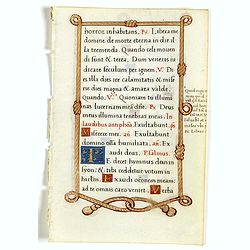 horror inhabitans. R. Libera me
domine de morte eterna in die il
la tremenda. Quando celi mouen
di sunt & terra. Dum veneris iu
dicare seculum per ignem. V. Di
es illa dies ire calamitatis & mise
ries dies magna & amara valde.
Quando. V. Quoniam tu illumi
nas lucernam meam R. Deus
meus illumina tenebras meas. In
laudibus antiphona Exultabunt
Miserere mei. añ. Exultabunt
domino ossa humiliata. añ. Ex
audi deus. Psalmus.
TE decet hymnus deus in
syon: & tibi reddetur votum in
hierlm. Exaudi orationem meam:
ad te omnis caro veniet. Verba